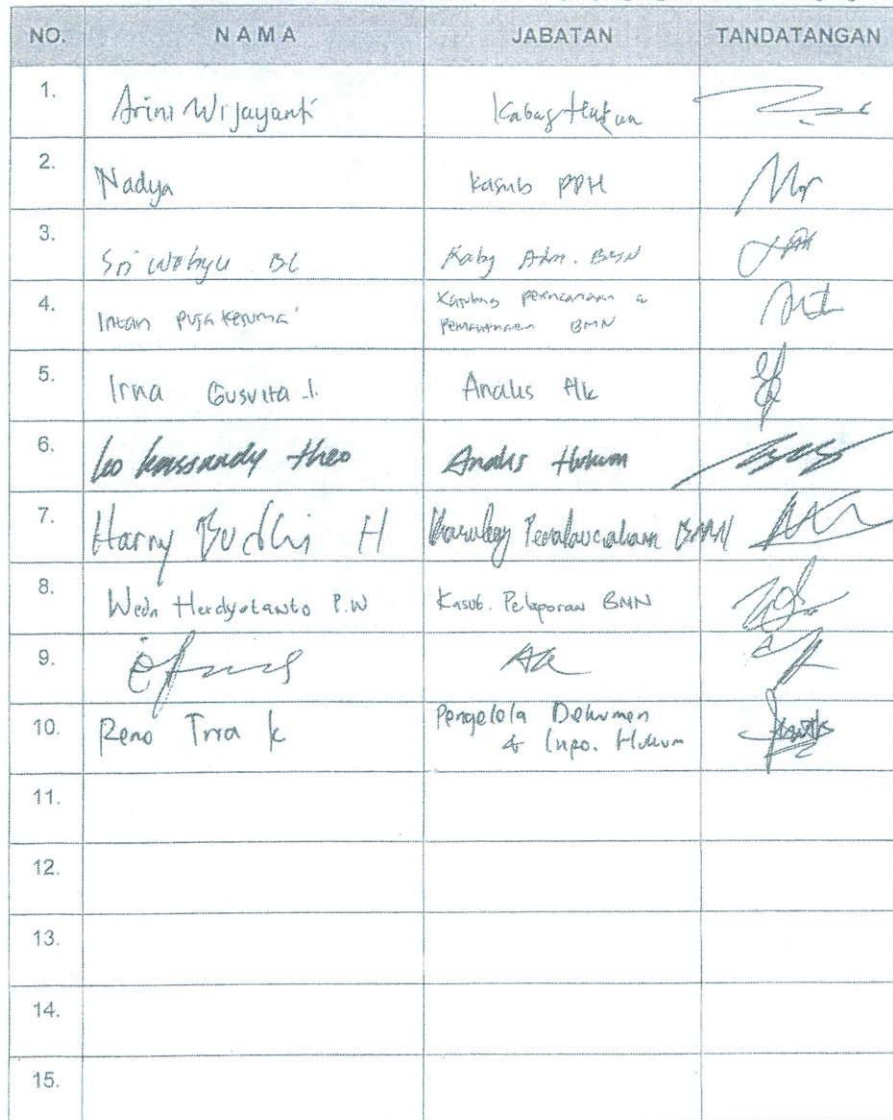 NO. NAMA JABATAN TANDATANGAN
1. Arini Wijayanti Kabag Hukum
2. Nadya Kasub PPH
3. Sri Wahyu BL Kabag Adm. BMN
4. Intan Puja Kesuma Kasubag perencanaan &
BMN
5. Irna Gusvita .I. Analis Hk
6. leo kassandy theo Analis Hukum
7. Harny Budhi H BMN
8. Weda Herdyatanto P.W Kasub. Pelaporan BMN
9.
10. Reno Tira k Pengelola Dokumen
& Info. Hukum
11.
12.
13.
14.
15.